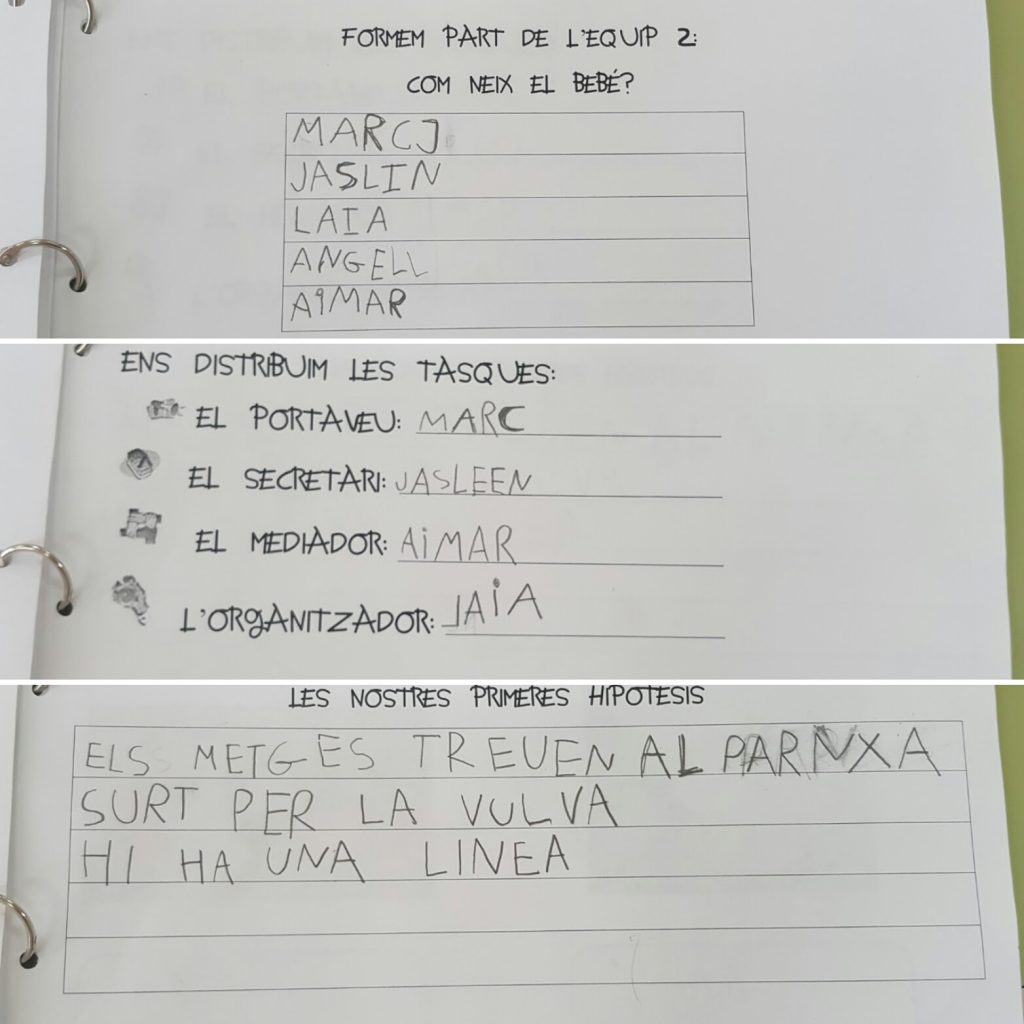 FORMEM PART DE L'EQUIP 2:
COM NEIX EL BEBÉ?
MARCJ
JASLIN
LAIA
ANGELL
AiMAR
ENS DISTRIBUIM LES TASQUES:
EL PORTAVEU: MARC
EL SECRETARI: JASLEEN
EL MEDIADOR: AiMAR
L'ORGANITZADOR: LAiA
LES NOSTRES PRIMERES HIPOTESIS
ELS METGES TREUEN AL PARNXA
SURT PER LA VULVA
HI HA UNA LINEA